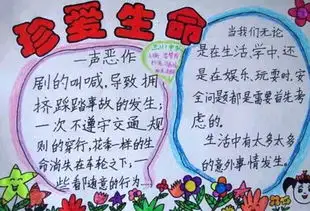 珍爱生命
一声恶作
剧的叫喊,导致拥
挤踩踏事故的发生;
一次不遵守交通规
则的穿行,花季一样的生
命消失在车轮之下;一
些看随意的行为……
当我们无论
是在生活,学中,还
是在娱乐,玩耍时,安
全问题都是需要首先考
虑的。
生活中有太多太多
的意外事情发生。